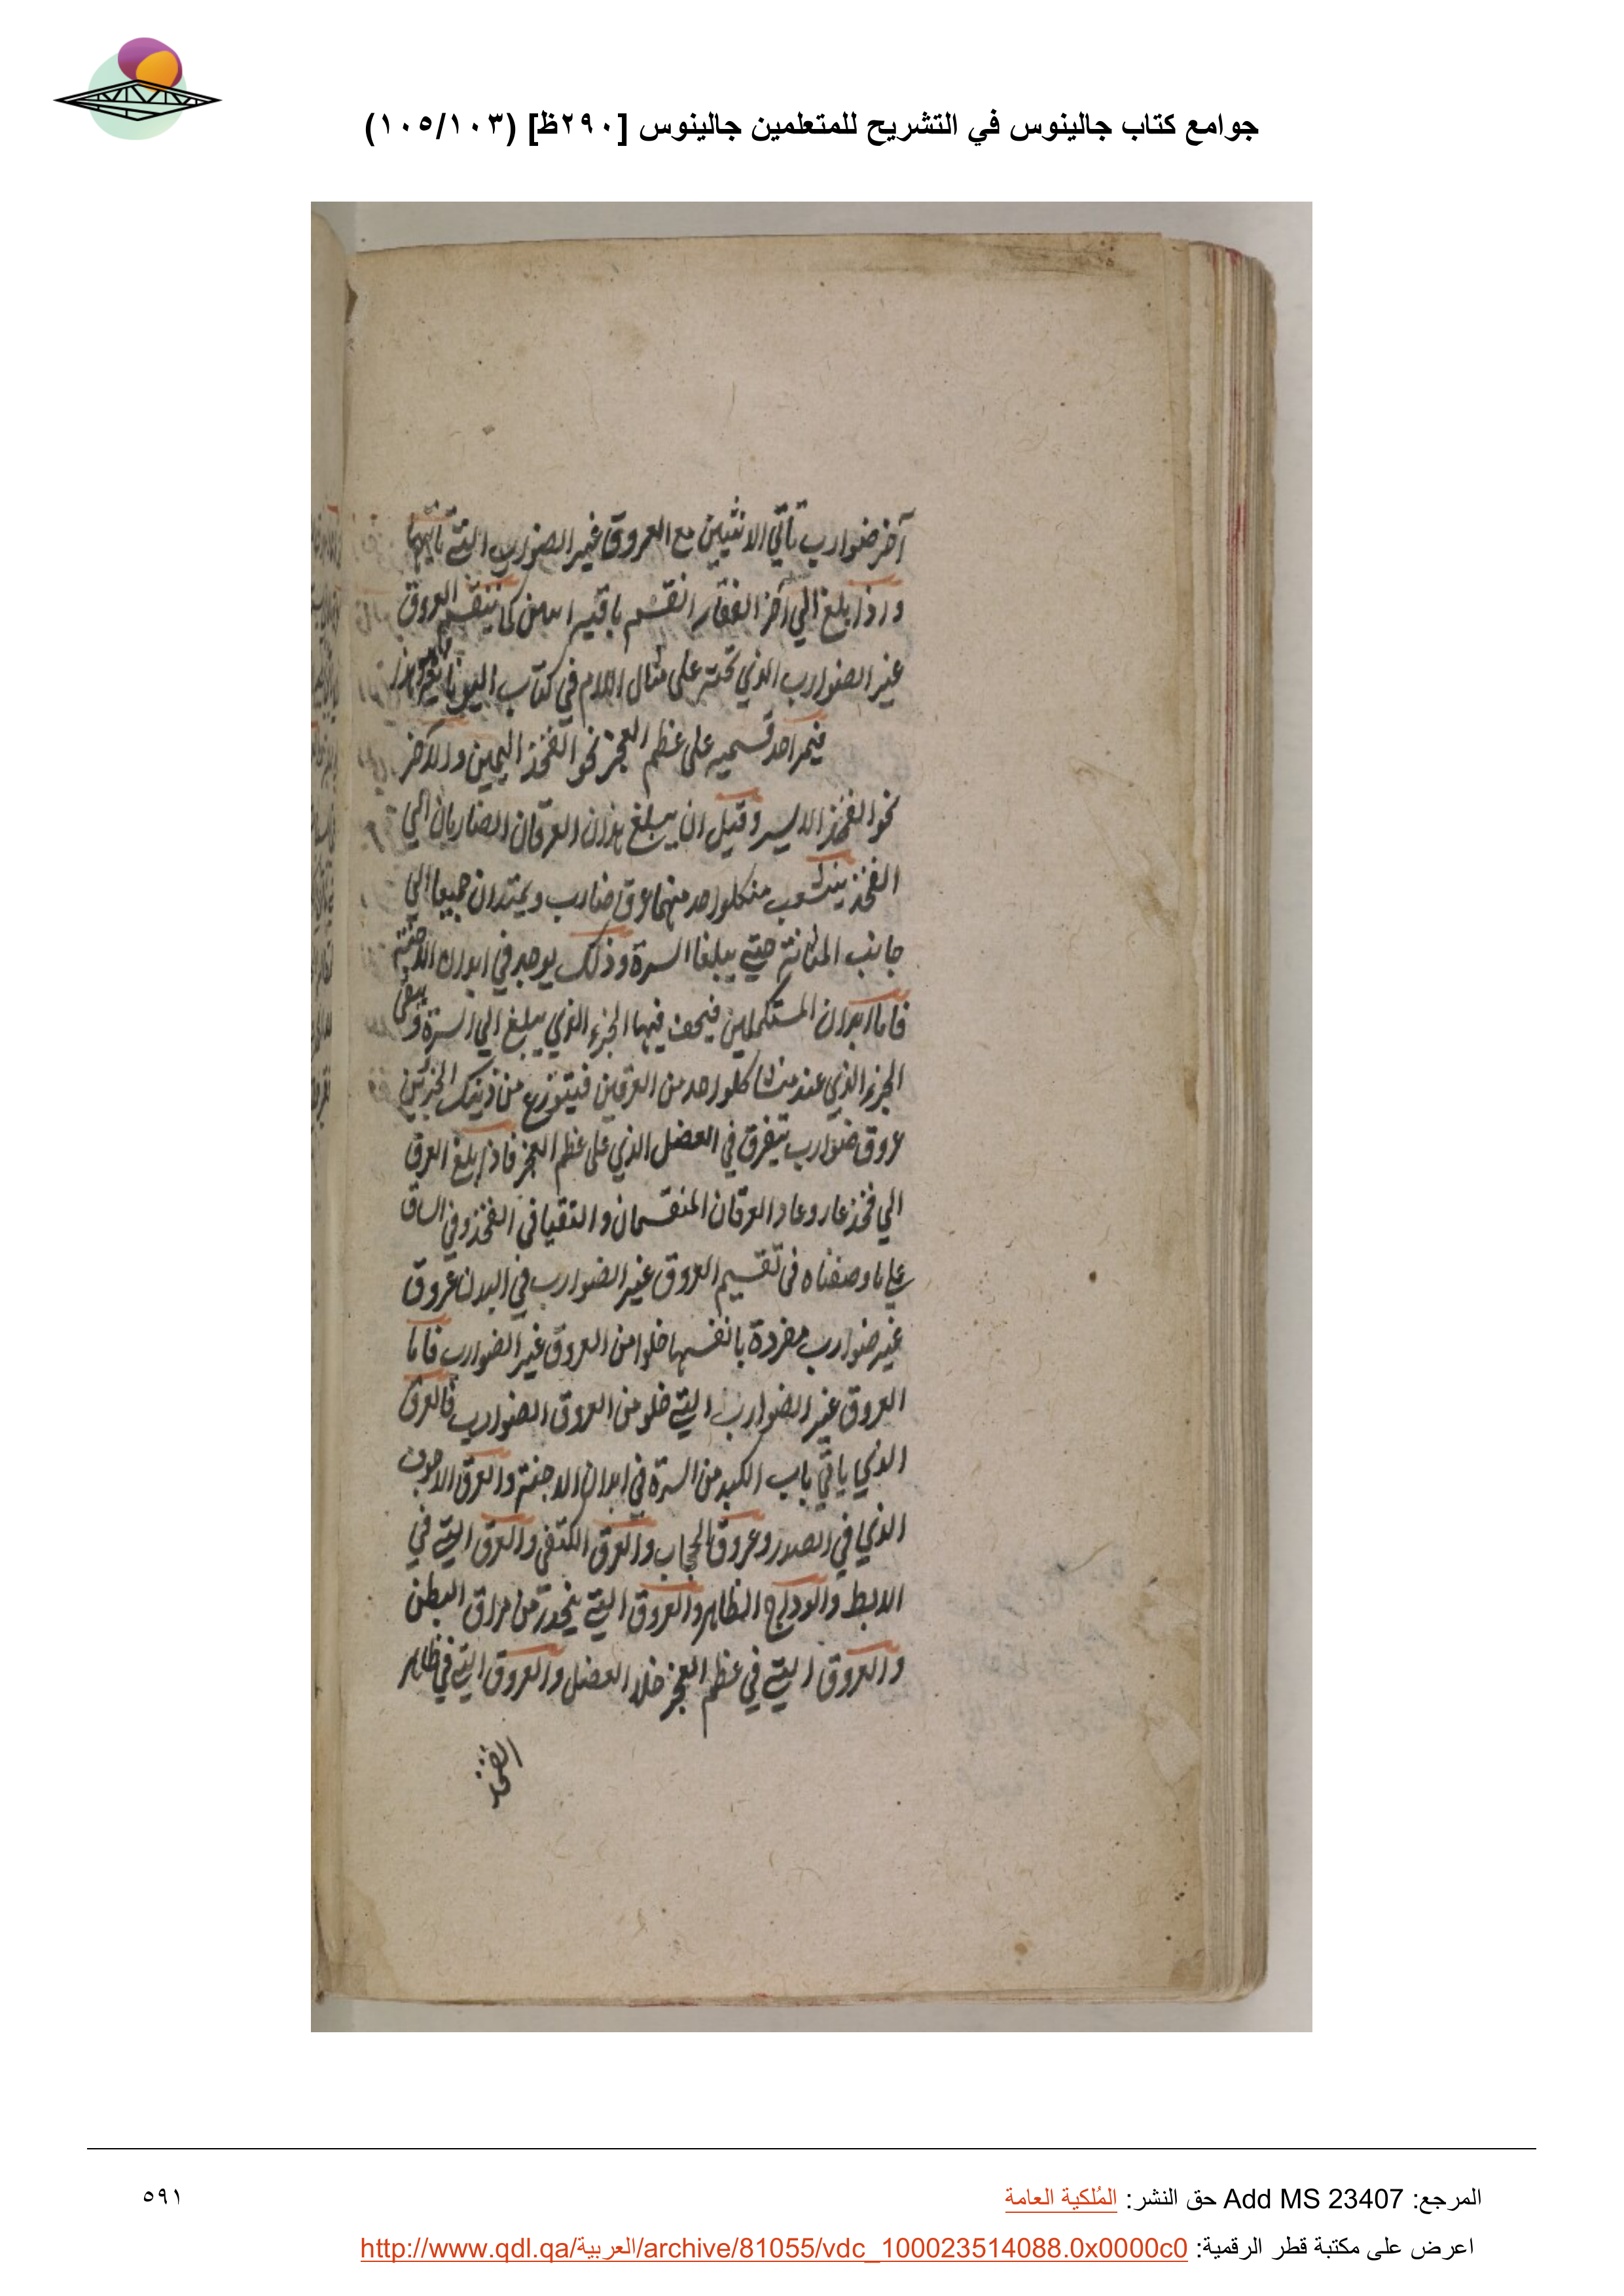 جوامع كتاب جالينوس في التشريح للمتعلمين جالينوس [٢٩٠ظ] (١٠٥/١٠٣)
آخر ضوارب تأتي الانثيين مع العروق غير الضوارب التي تأتيها
واذا بلغ الي آخر الفقار انقسم باقيه اسفل كما تنقسم العروق
غير الضوارب الذي تحته على مثال اللام في كتاب اليونانيين
فيمر احد قسميه على عظم العجز نحو الفخذ اليمين والآخر
نحو الفخذ الايسر وقبل ان يبلغ هذان العرقان الضاربان الي
الفخذ ينشعب من كلواحد منهما عرق ضارب ويمتدان جميعا الي
جانب المثانة حتي يبلغا السرة وذلك يوجد في ابدان الاجنة
فاما ابدان المستكملين فيجف فيها الجزء الذي يبلغ الي السرة ويبقى
الجزء الذي عند منشا كلواحد من العرقين فيتوزع من ذينك الجزئين
عروق ضوارب تتفرق في العضل الذي على عظم العجز فاذا بلغ العرق
الي فخذ عار وعاد العرقان المنقسمان والتقيا في الفخذ وفي الساق
علي ما وصفناه في تقسيم العروق غير الضوارب في البدن عروق
غير ضوارب مفردة بانفسها خلوا من العروق غير الضوارب فاما
العروق غير الضوارب التي خلو من العروق الضوارب فالعرق
الذي ياتي باب الكبد من السرة في ابدان الاجنة والعرق الاجوف
الذي في الصدر وعروق الحجاب والعرق الكتفي والعرق التي في
الابط والوداج الظاهر والعروق التي ينحدر من مراق البطن
والعروق التي في عظم العجز خلا العضل والعروق التي في ظاهر
الفخذ
المرجع: Add MS 23407 حق النشر: المُلكية العامة
٥٩١
اعرض على مكتبة قطر الرقمية: http://www.qdl.qa/العربية/archive/81055/vdc_100023514088.0x0000c0